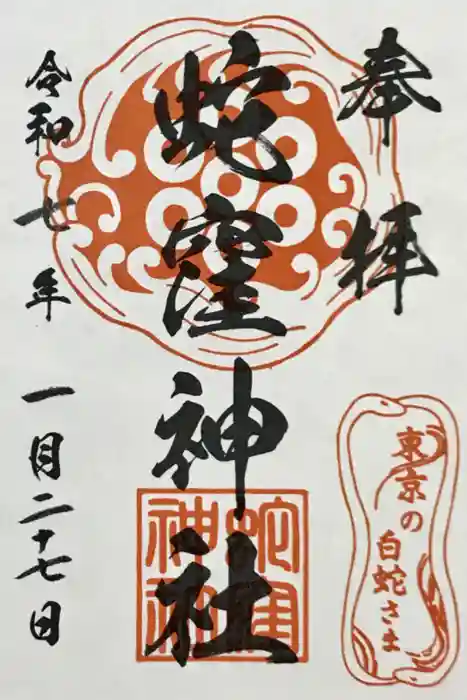 奉拝
蛇窪神社
令和七年一月二十七日
東京の
白蛇さま
蛇窪
神社